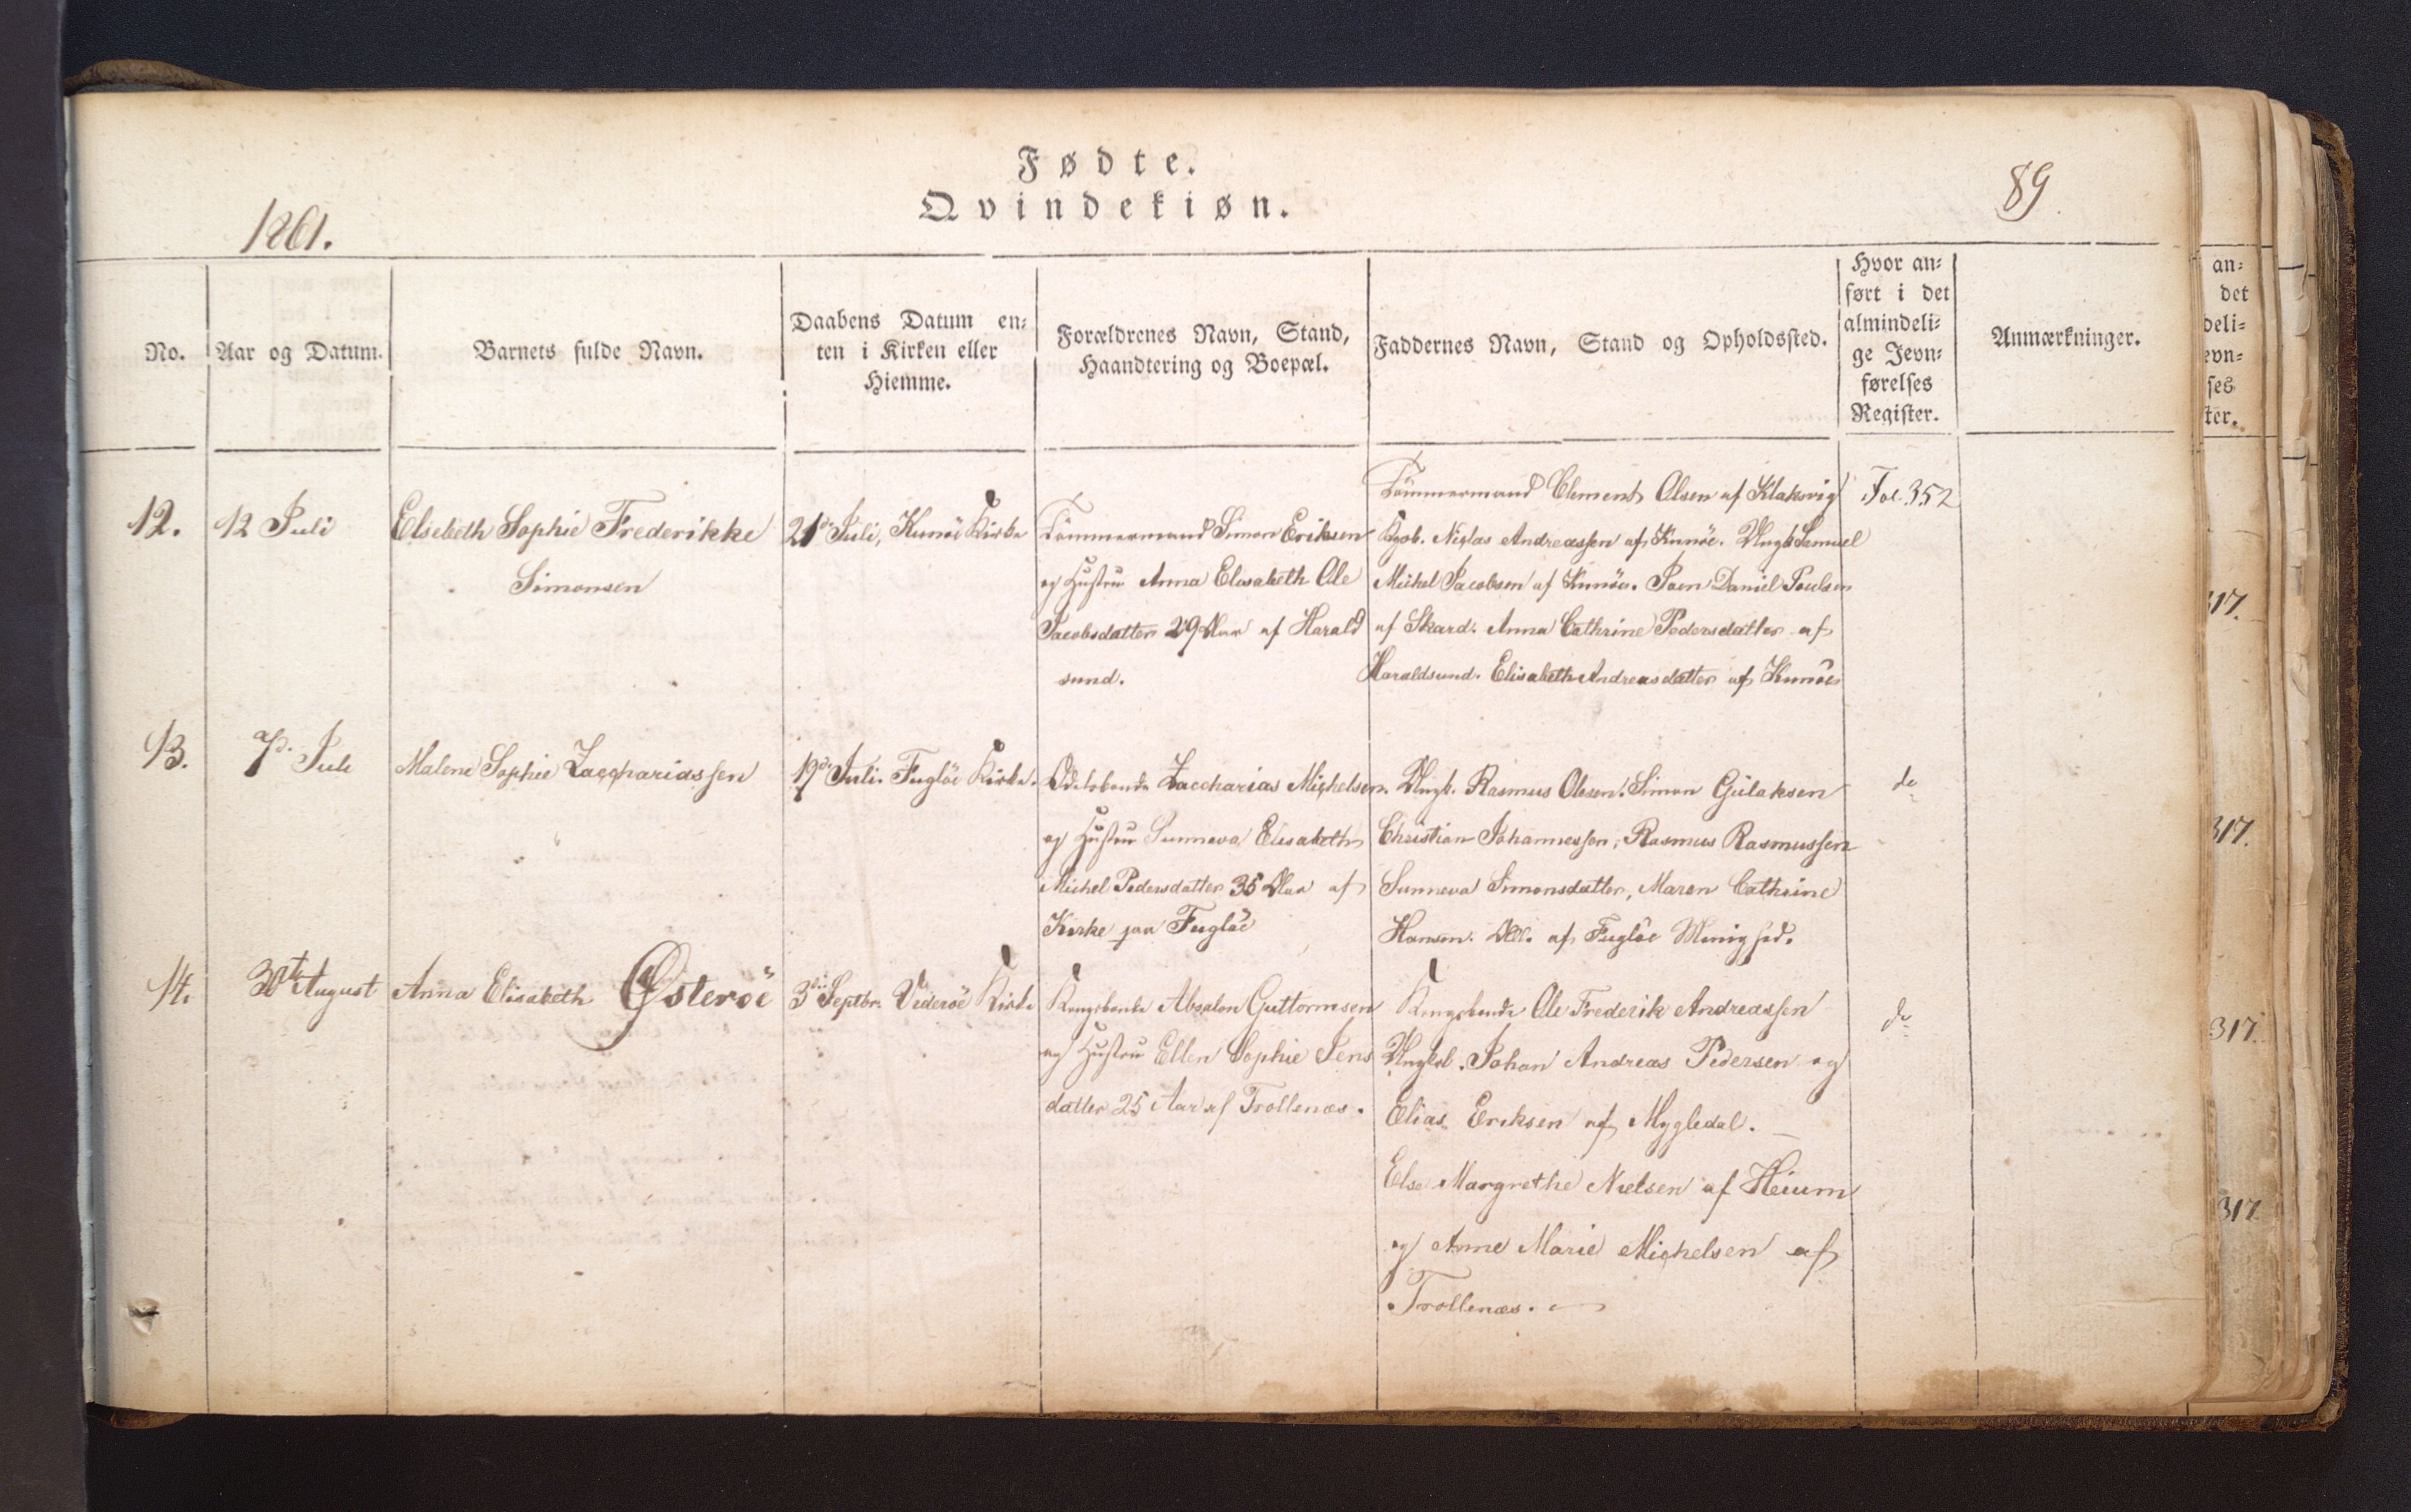 Fødte.
Qvindekiøn.
89
1861.
No.
Aar og Datum.
Barnets fulde Navn.
Daabens Datum en-
ten i Kirken eller
Hiemme.
Forældrenes Navn, Stand,
Haandtering og Boepæl.
Faddernes Navn, Stand og Opholdssted.
Hvor an-
ført i det
almindeli-
ge Jevn-
førelses
Register.
Anmærkninger.
12.
12 Juli
Elsebeth Sophie Frederikke
Simonsen
21de Juli, Kunöe Kirke
Tömmermand Simon Eriksen
og Hustru Anna Elisabeth Ole
Jacobsdatter 29 Aar af Harald
sund.
Tömmermand Clement Olsen af Klaksvig
Kgsb. Niclas Andreassen af Kunöe. Ungk. Samuel
Michel Jacobsen af Kunöe. Joen Daniel Poulsen
af Skard. Anna Cathrine Pedersdatter af
Haraldsund. Elisabeth Andreasdatter af Kunöe
Fol. 352
13.
7de Juli
Malene Sophie Zacchariassen
19de Juli. Fuglöe Kirke.
Odelsbonde Zaccharias Michelsen
og Hustru Sunneva Elisabeth
Michel Pedersdatter 35 Aar af
Kirke paa Fuglöe
Ungk. Rasmus Olesen. Simon Gulaksen
Christian Johannessen, Rasmus Rasmussen
Sunneva Simonsdatter, Maren Cathrine
Hansen. Alle af Fuglöe Menighed.
do
14.
30te August
Anna Elisabeth Østeröe
3die Septbr. Videröe Kirke
Kongsbonde Absalon Guttormsen
og Hustru Ellen Sophie Jens
datter 25 Aar af Trollenæs.
Kongsbonde Ole Frederik Andreassen
Ungkl. Johan Andreas Pedersen og
Elias Eriksen af Mygledal.
Else Margrethe Nielsen af Heium
og Anne Marie Michelsen af
Trollenæs.
do
an-
det
deli-
evn-
ses
ter.
317.
317.
317.
317.